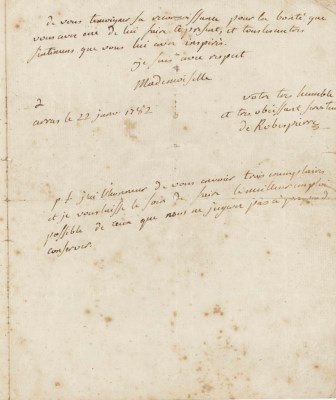 de vous temoigner sa reconnaissance pour la bonté que
vous avez eue de lui faire ce present, et tous les autres
sentimens que vous lui avez inspirés.
je suis avec respect
Mademoiselle
votre tres humble
et tres obeissant serviteur
de Robespierre
arras le 22 janv 1782
p. s. j'ai l'honneur de vous envoier trois exemplaires
et je vous laisse le soin de faire le meilleur emploi
possible de ceux que vous ne jugerez pas à propos de
conserver.